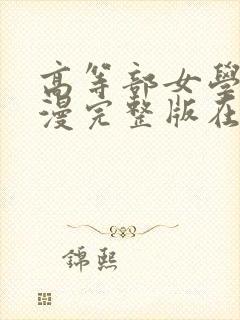 高等部女學
漫完整版在
錦熙